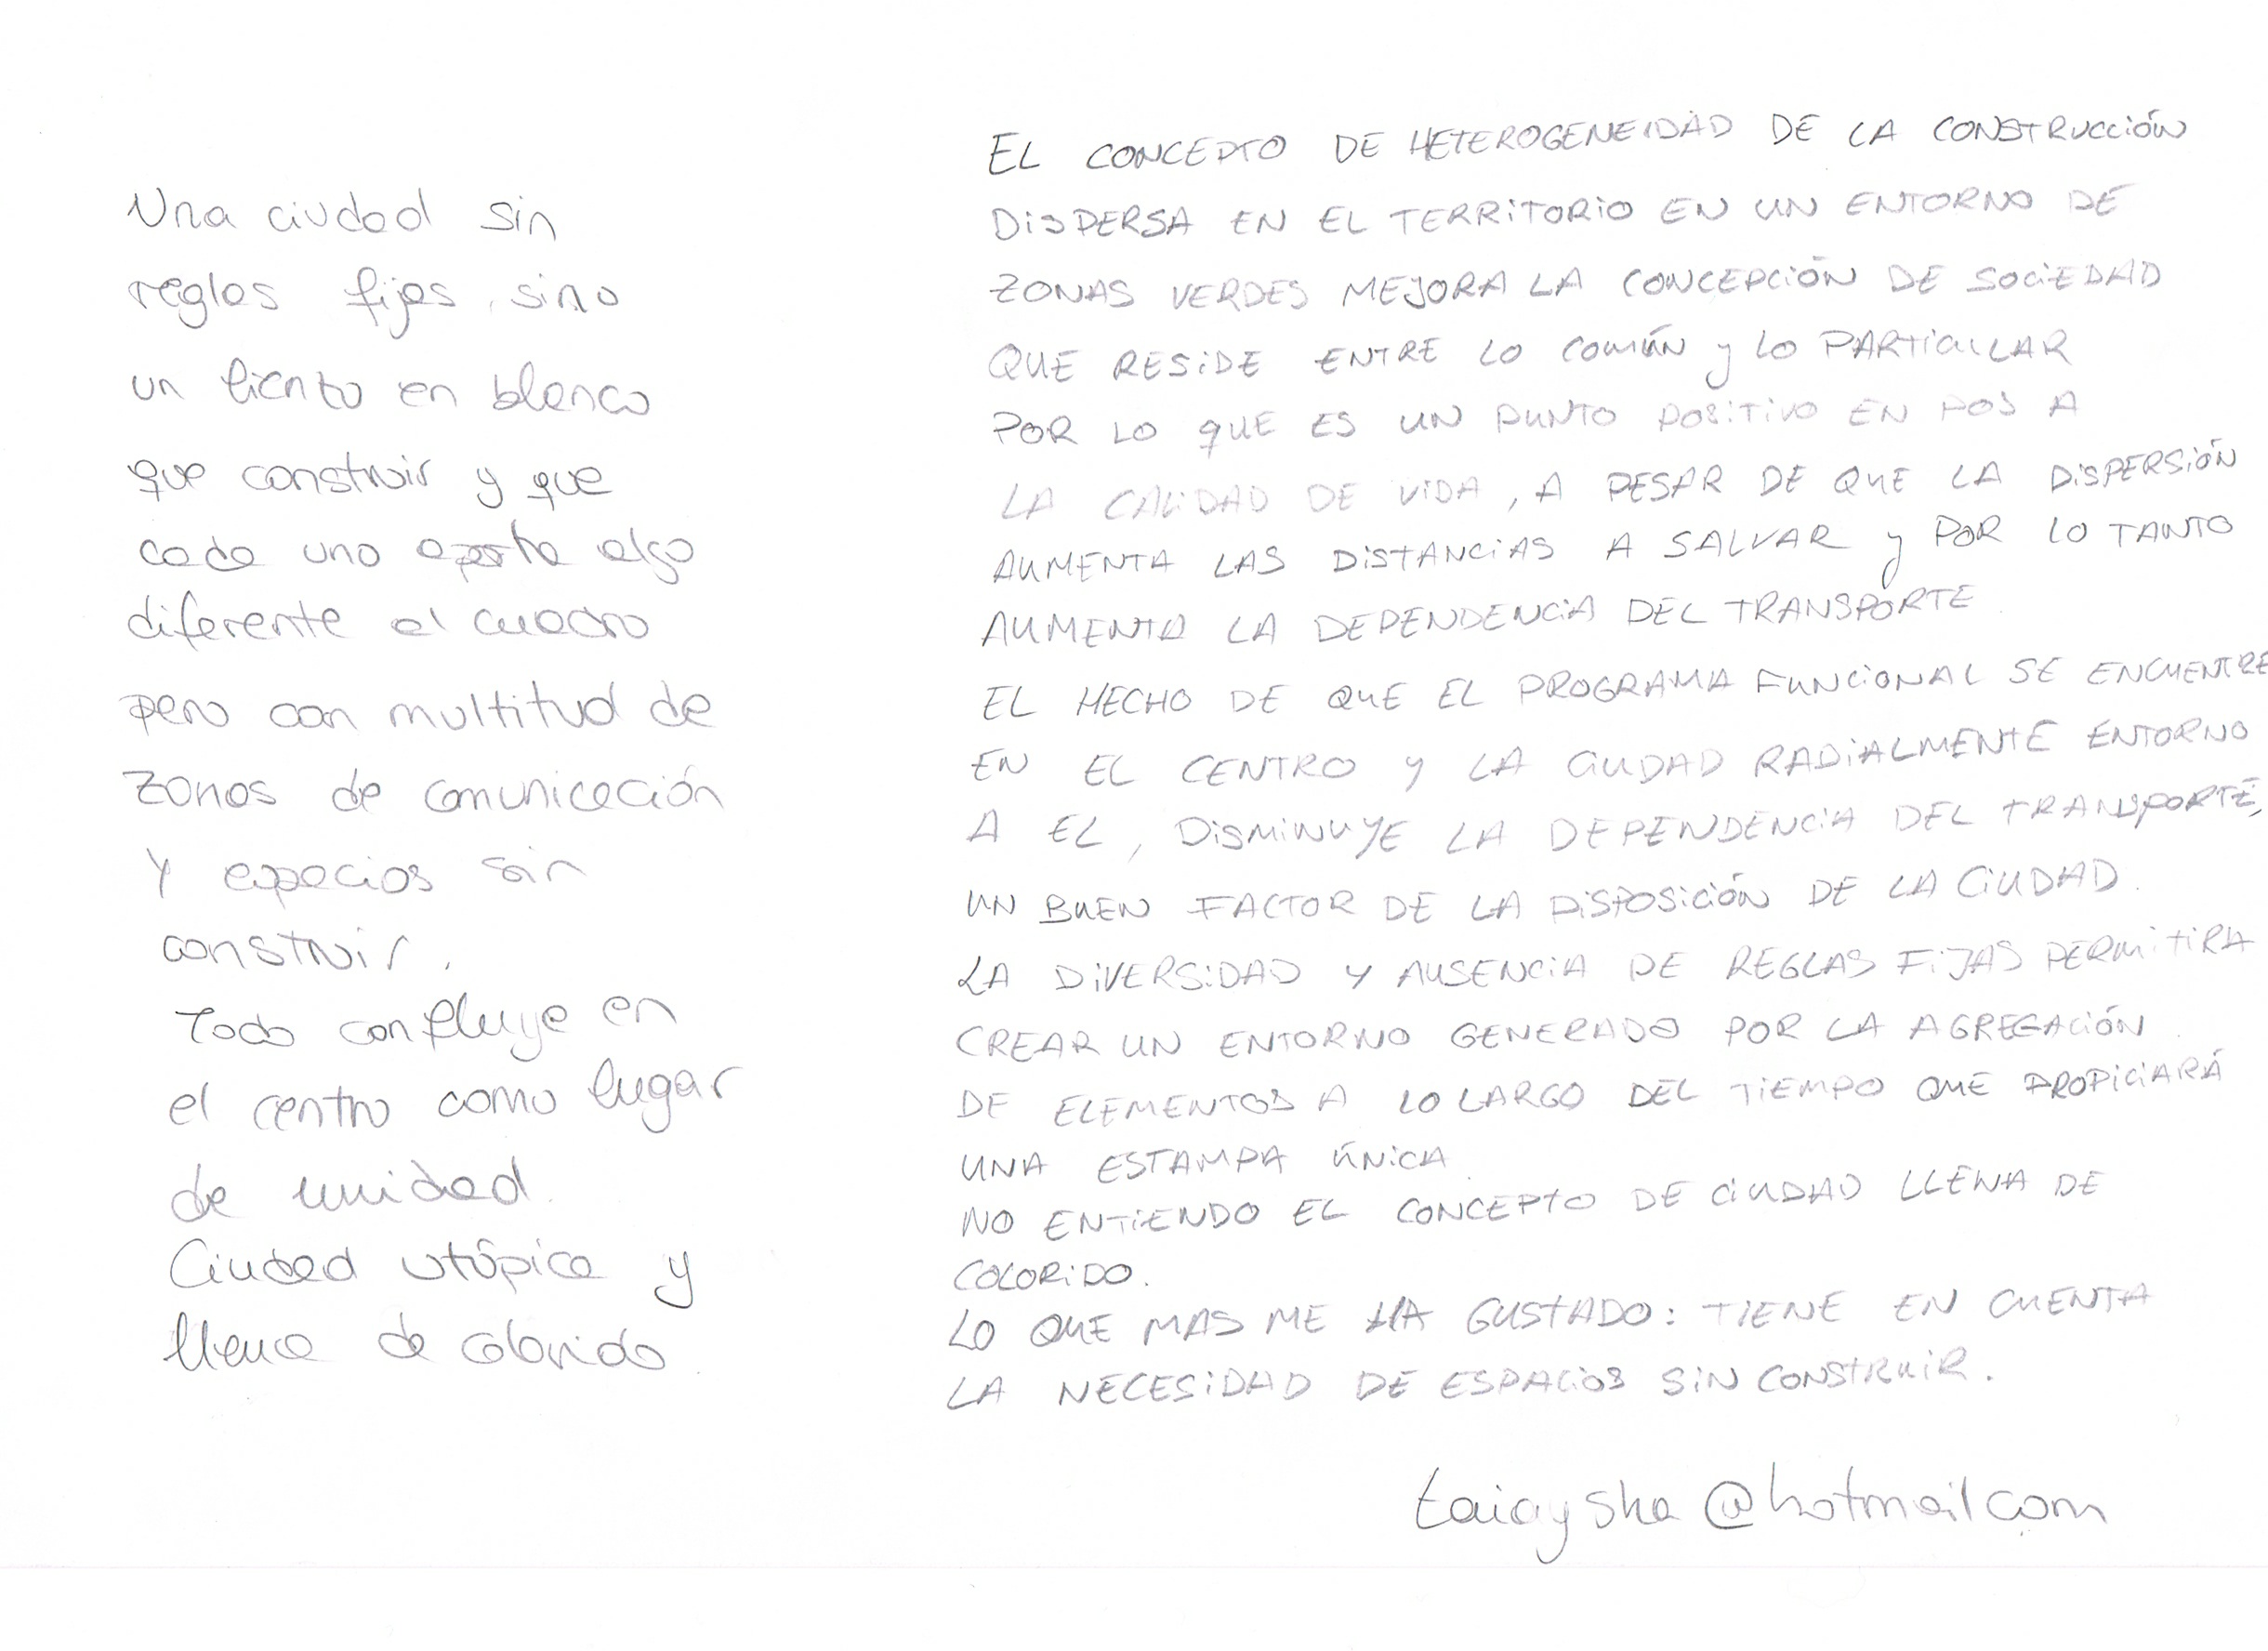 Una ciudad sin
reglas fijas, sino
un lienzo en blanco
que construir y que
cada uno aporte algo
diferente al cuadro
pero con multitud de
zonas de comunicación
Y espacios sin
construir.
Todo confluye en
el centro como lugar
de unidad.
Ciudad utópica y
llena de colorido.
EL CONCEPTO DE HETEROGENEIDAD DE LA CONSTRUCCIÓN
DISPERSA EN EL TERRITORIO EN UN ENTORNO DE
ZONAS VERDES MEJORA LA CONCEPCIÓN DE SOCIEDAD
QUE RESIDE ENTRE LO COMÚN y LO PARTICULAR
POR LO QUE ES UN PUNTO POSITIVO EN POS A
LA CALIDAD DE VIDA, A PESAR DE QUE LA DISPERSIÓN
AUMENTA LAS DISTANCIAS A SALVAR y POR LO TANTO
AUMENTA LA DEPENDENCIA DEL TRANSPORTE.
EL HECHO DE QUE EL PROGRAMA FUNCIONAL SE ENCUENTRE
EN EL CENTRO Y LA CIUDAD RADIALMENTE ENTORNO
A EL, DISMINUYE LA DEPENDENCIA DEL TRANSPORTE,
UN BUEN FACTOR DE LA DISPOSICIÓN DE LA CIUDAD.
LA DIVERSIDAD Y AUSENCIA DE REGLAS FIJAS PERMITIRA
CREAR UN ENTORNO GENERADO POR LA AGREGACIÓN
DE ELEMENTOS A LO LARGO DEL TIEMPO QUE PROPICIARÁ
UNA ESTAMPA ÚNICA.
NO ENTIENDO EL CONCEPTO DE CIUDAD LLENA DE
COLORIDO.
LO QUE MAS ME HA GUSTADO: TIENE EN CUENTA
LA NECESIDAD DE ESPACIOS SIN CONSTRUIR.
taiaysha@hotmail.com